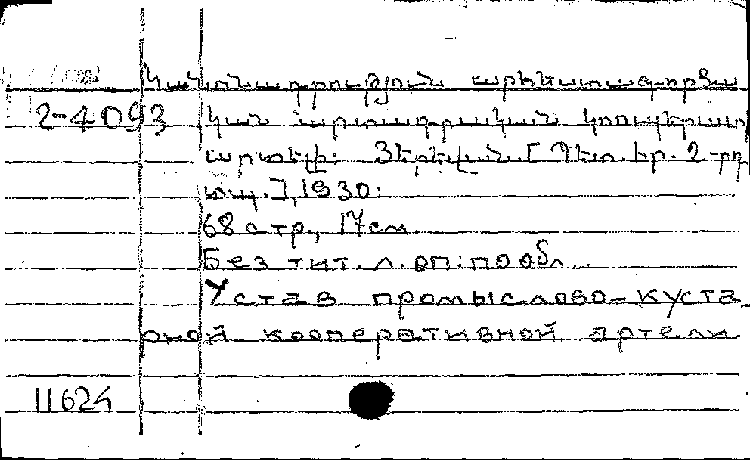 Կանոնադրություն արհեստագործա
2-4093 կան արտադրական կոոպերատ
արտելի: Յերեվան [Պետ. հր. 2-րդ
տպ.], 1930:
68 стр., 17 см
Без тит. л. оп: по обл.
Устав промыслово-куста
рной кооперативной артели
11624